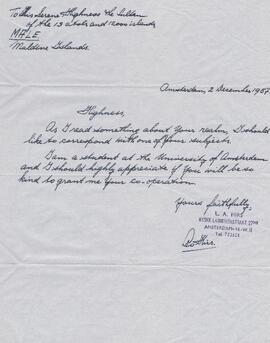 To His Serene Highness the Sultan
of the 13 atols and 12000 islands
MALE
Maldive Islands.
Amsterdam, 2 December 1957
Highness,
As I read something about Your realm, I should
like to correspond with one of Your subjects.
I am a student at the University of Amsterdam
and I should highly appreciate if You will be so
kind to grant me Your co-operation.
Yours faithfully,
L. A.
AMSTERDAM-W. II
Tel.